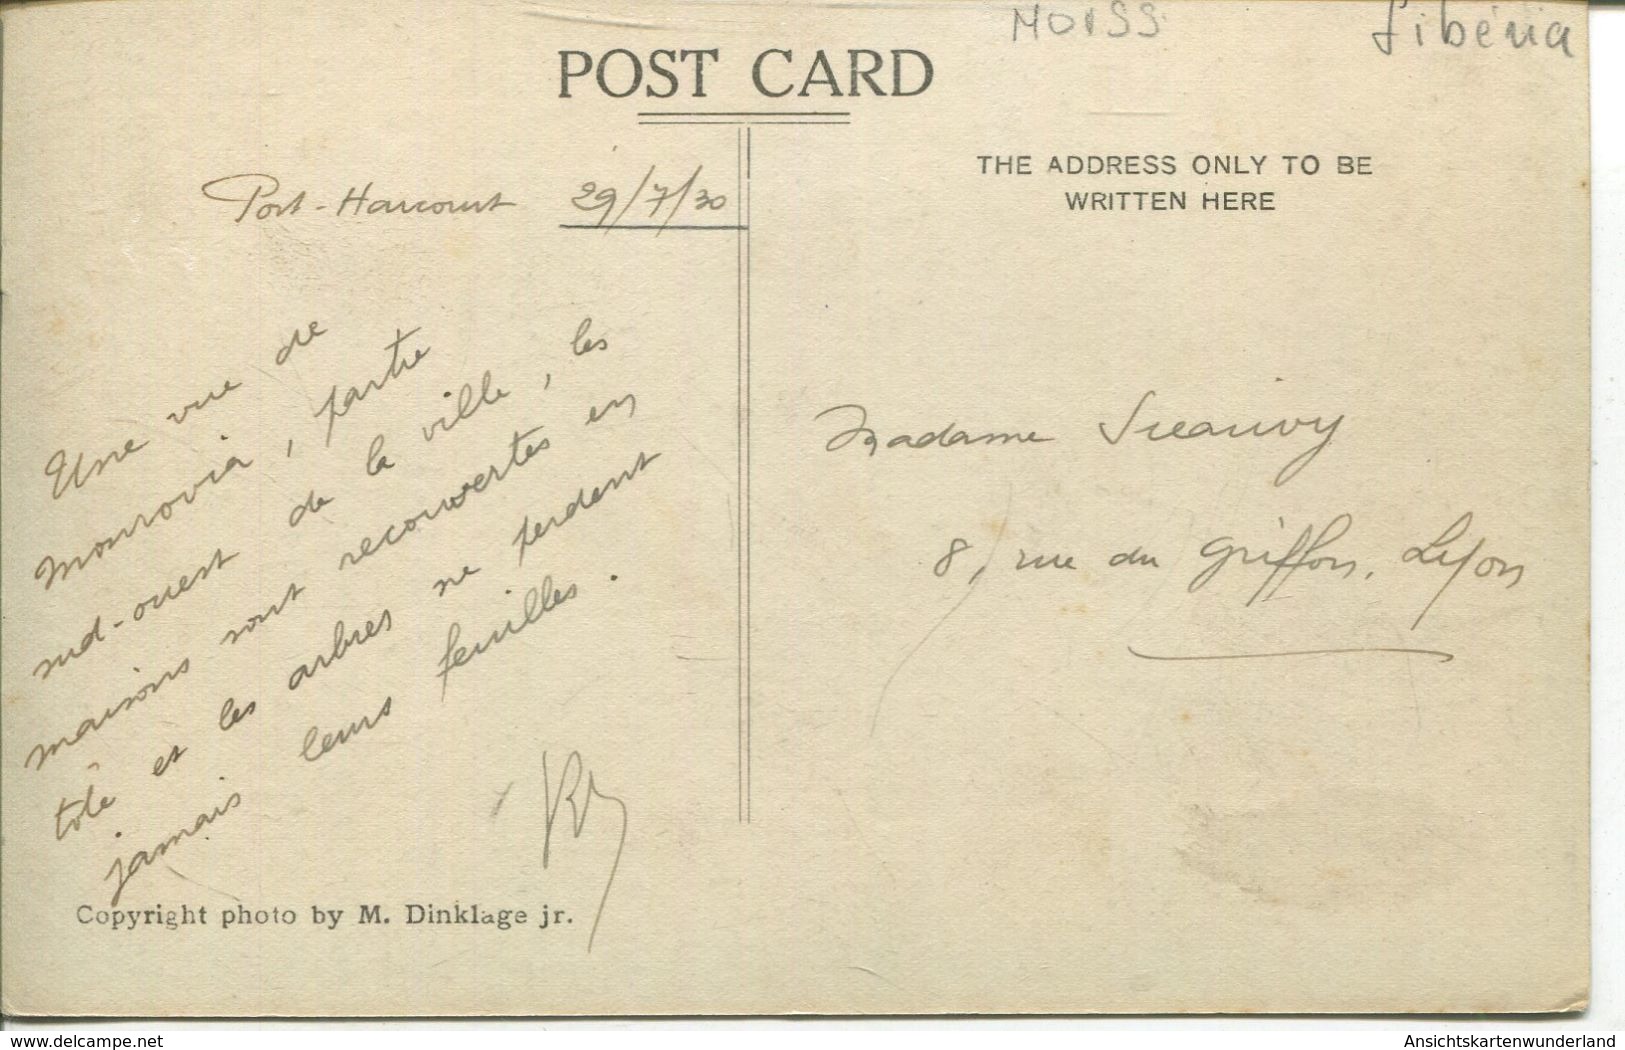 MOISS
Libéria
POST CARD
THE ADDRESS ONLY TO BE
WRITTEN HERE
Port-Harcourt 29/7/30
Une vue de
Monrovia, partie
sud-ouest de la ville, les
maisons sont recouvertes en
tôle et les arbres ne perdent
jamais leurs feuilles.
Madame
8, rue du Griffon, Lyon
Copyright photo by M. Dinklage jr.
delcampe.net
Ansichtskartenwunderland